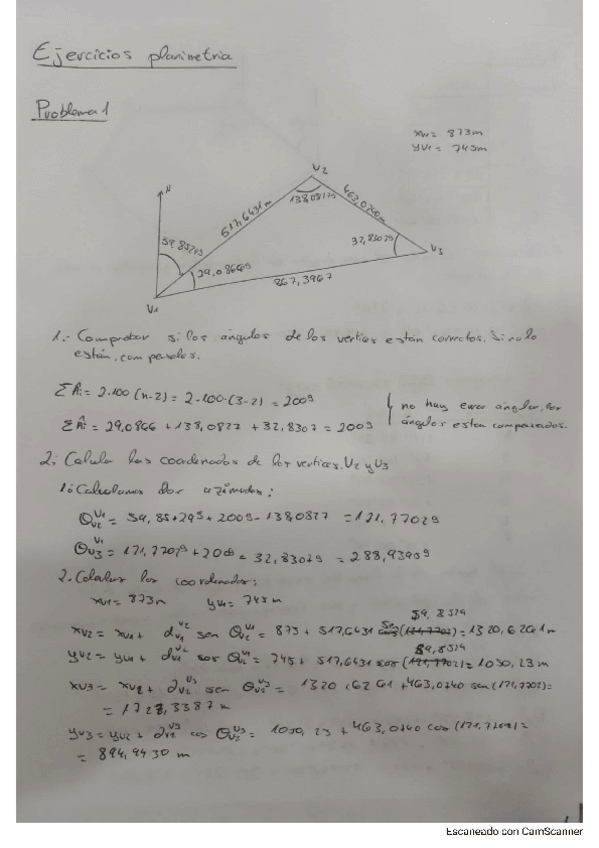 Ejercicios planimetria
Problema 1
xv1= 873m
yv1= 745m
V2
N
517,6431m
138,0827g
463,0740m
59,8529g
32,8307g
V3
29,0866g
867,3967
V1
1.- Comprobar si los ángulos de los vertices están correctos. Si no lo
están, compenselos.
ΣÂi= 2·100 (n-2) = 2·100·(3-2) = 200g
no hay error ángular, los
ΣÂi= 29,0866 +138,0827 +32,8307 = 200g
ángulos estan compensados.
2.- Calcula las coordenadas de los vertices V2 y V3
1.- Calculamos los azimutes:
θV2V1 = 59,8529g + 200g - 138,0827 = 121,7702g
θV3V1 = 121,7702g + 200g = 32,8307g = 288,9395g
2. Calculas las coordenadas:
xv1= 873m yv1= 745m
59,8529
xv2= xv1+ dv1v2 sen θv2v1 = 873 + 517,6431 sen (121,7702) = 1320,6261m
59,8529
yv2= yv1+ dv1v2 cos θv2v1 = 745 + 517,6431 cos (121,7702) = 1030,23m
xv3= xv2+ dv2v3 sen θv2v3 = 1320,6261 +463,0740 sen (121,7702)=
= 1728,3387m
yv3= yv2+ dv2v3 cos θv2v3= 1030,23 + 463,0740 cos (121,7702)=
= 894,4430 m
1
Escaneado con CamScanner